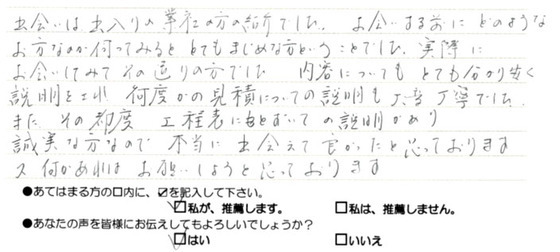 出会いは出入りの業社の方の紹介でした。 お会いする前に どのような
お方なのか伺ってみると とてもまじめな方ということでした。実際に
お会いしてみて その通りの方でした 内容についても とても分かり易く
説明をされ 何度かの見積についての説明も 丁寧でした。
また、その都度 工程表にもとずいての説明があり
誠実な方なので 本当に出会えて良かったと思っております
又 何かあればお願いしようと思っております
●あてはまる方の□内に、☑を記入して下さい。
☑私が、推薦します。 □私は、推薦しません。
●あなたの声を皆様にお伝えしてもよろしいでしょうか？
☑はい □いいえ